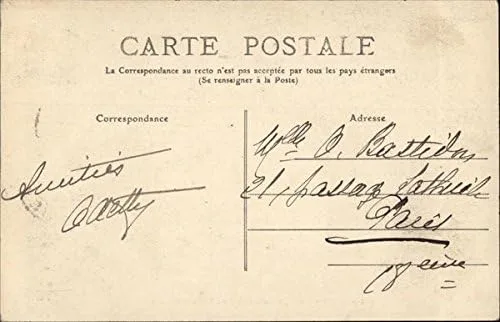 CARTE POSTALE
La Correspondance au recto n'est pas acceptée par tous les pays étrangers
(Se renseigner à la Poste)
Correspondance
Amitiés
Adresse
Mlle O. Bastidon
21, passage
Paris
Seine